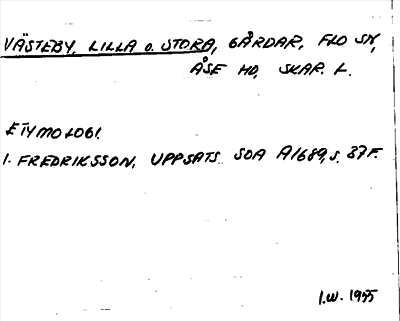 VÄSTEBY, LILLA O. STORA, GÅRDAR, FLO SN,
ÅSE HD, SKAR. L.
ETYMOLOGI.
I. FREDRIKSSON, UPPSATS SOA A1689, S. 37F.
I.W. 1955